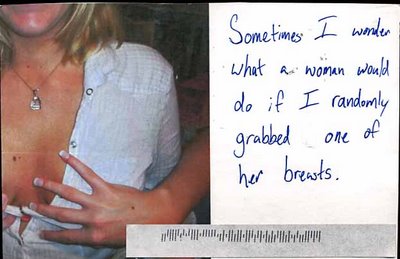 Sometimes I wonder
what a woman would
do if I randomly
grabbed one of
her breasts.